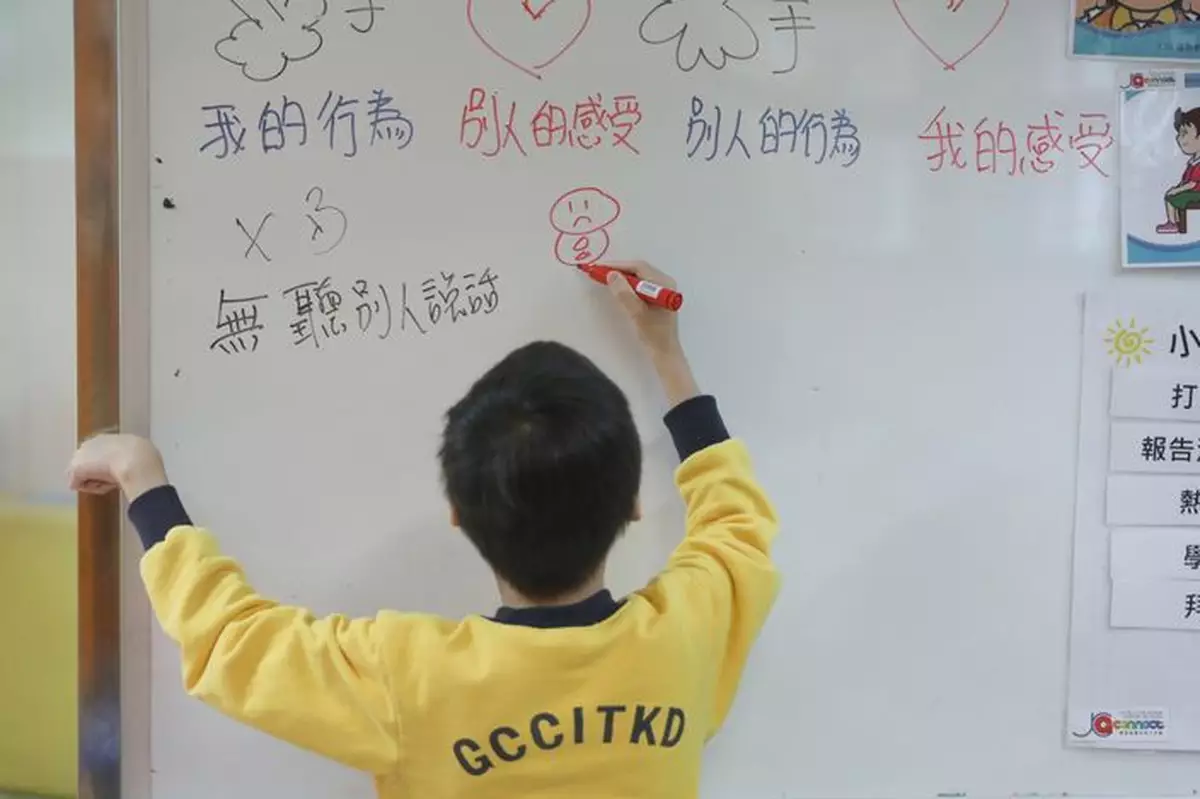 手
手
我的行為 別人的感受 別人的行為 我的感受
x3
無聽別人說話
小
打
報告
熱
學
拜
JC connect
GCCITKD